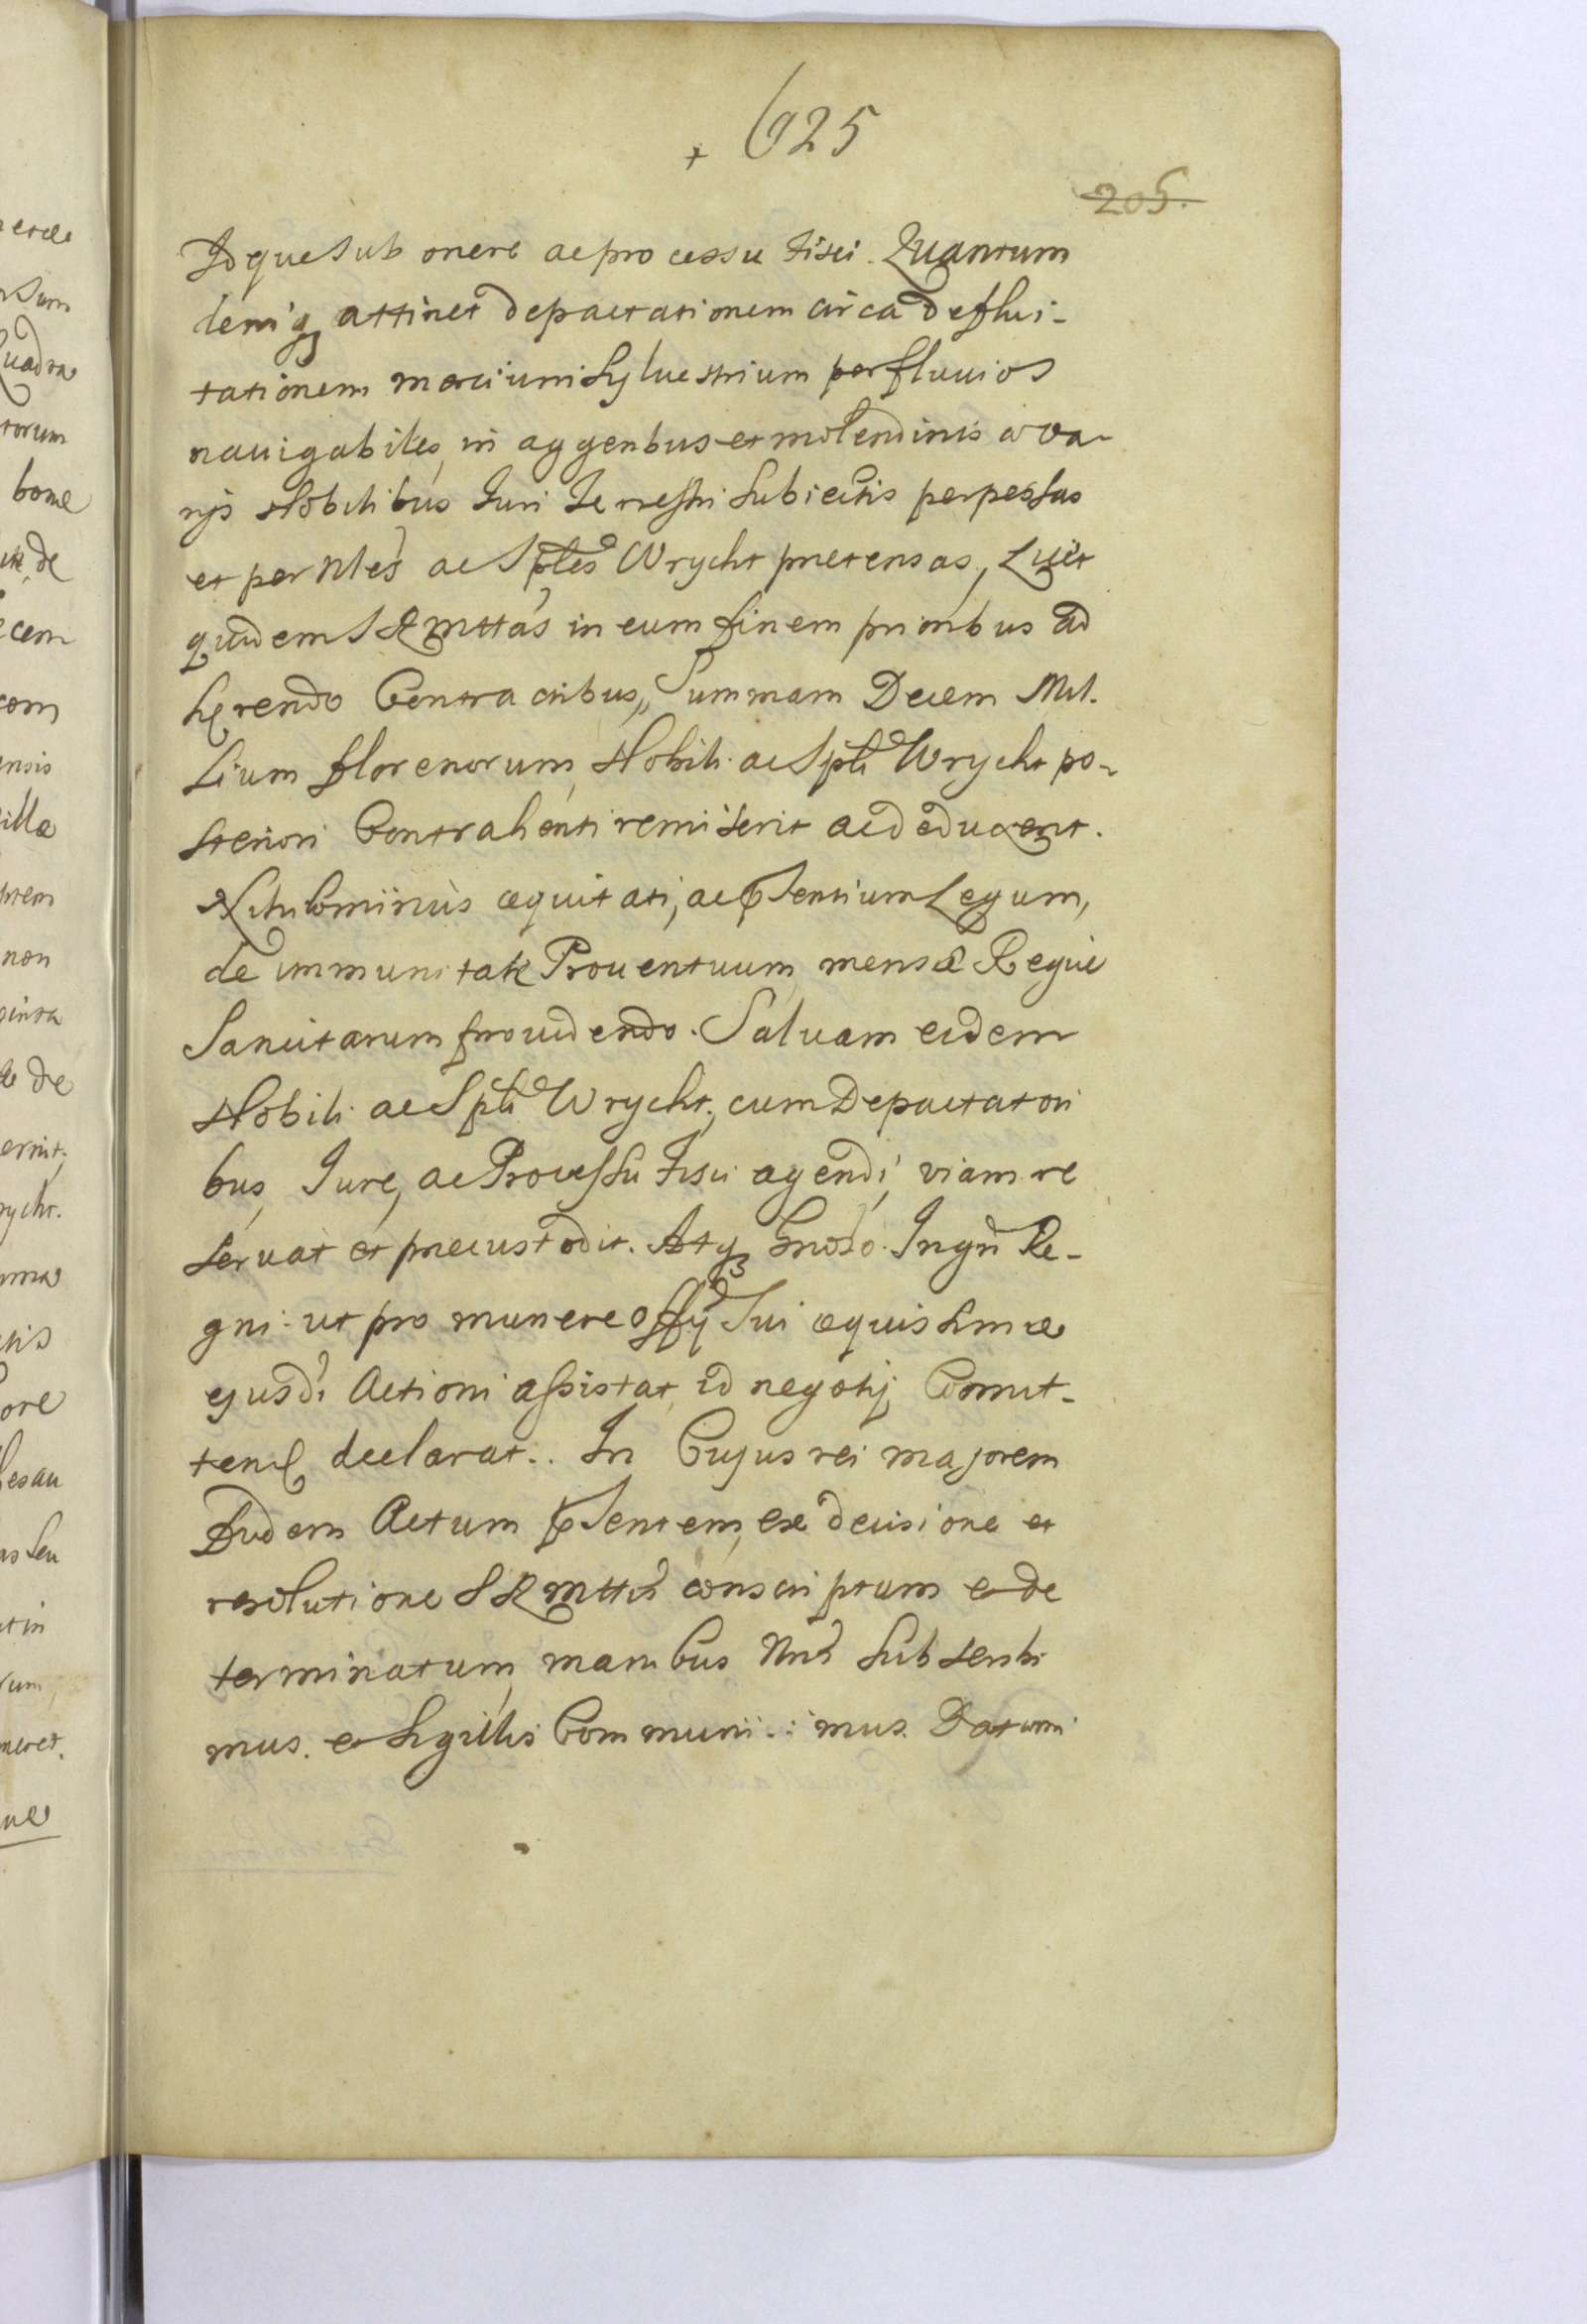 + 625
205.
Idque sub onere ac processu fisci. Quantum
deniq attinet depactationem circa deflui-
tationem merciumSylvestrium per fluuios
nauigabiles, in aggeribus et molendinis à va-
rijs Nobilibus Juri Terrestri Subiectis perpessas
et per Nles ac Sptles Wrycht pretensas, Licet
quidem SRMttas in eum finem prioribus ad
herendo Contractibus, Summam Decem Mil-
lium florenorum, Nobili ac Sptli Wrycht po-
steriori Contrahenti remiserit ac deduxerit.
Nihilominùs æquitati, ac psentium Legum,
de immunitate Prouentuum mensæ Regiæ
Sancitarum prouidendo. Saluam eidem
Nobili ac Sptli Wrycht, cum Depactatori
bus, Jure, ac Processu Fisci agendi, viam re
seruat et precustodit. Atq Gnoso Ingri Re-
gni ut pro munere Offij Sui æquissimæ
ejusd Actioni assistat, id negotij Comit-
tend declarat. In Cujus rei majorem
fidem Actum psentem, ex decisione et
resolutione SRMttis conscriptum et de
terminatum, manibus Nris subscribi
mus. et sigillis Communi.:mus. Datum